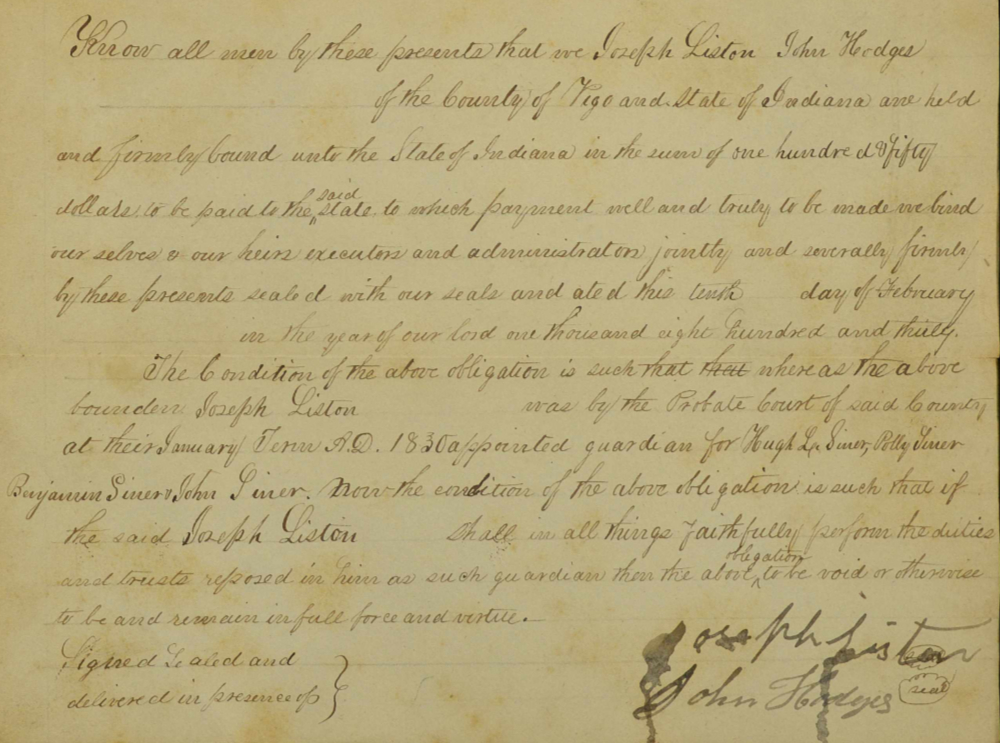 Know all men by these presents that we Joseph Liston John Hodges
of the County of Vigo and State of Indiana are held
and firmly bound unto the State of Indiana in the sum of one hundred & fifty
dollars, to be paid to the said state, to which payment well and truly to be made we bind
our selves & our heirs executors and administrators jointly and severally firmly
by these presents sealed with our seals and ated this tenth day of February
in the year of our lord one thousand eight hundred and thirty.
The Condition of the above obligation is such that that where as the above
bounden Joseph Liston was by the Probate Court of said County
at their January Term A.D. 1830 appointed guardian for Hugh L. Siner, Polly Siner
Benjamin Siner & John Siner. Now the condition of the above obligation is such that if
the said Joseph Liston shall in all things faithfully perform the duties
and trusts reposed in him as such guardian then the above obligation to be void or otherwise
to be and remain in full force and virtue.
Signed Sealed and
delivered in presence of
Joseph Liston seal
John Hodges seal